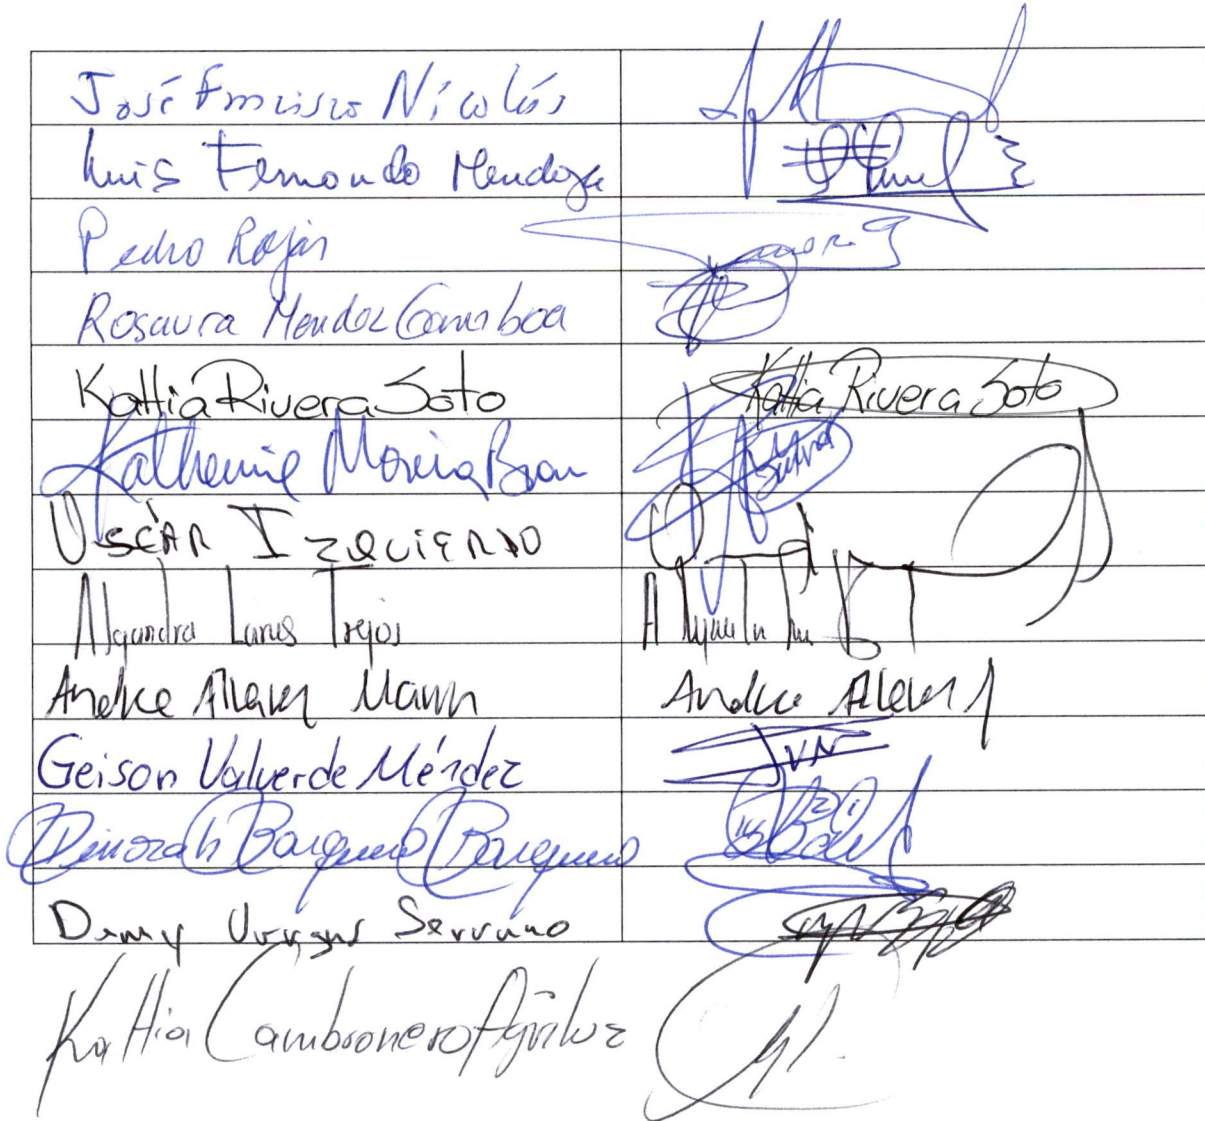 José Francisco Nicolás
Luis Fernando Mendoza
Pedro Rojas
Rosaura Mendez Gamboa
Kattia Rivera Soto Kattia Rivera Soto
Katherine Moreira Bran
Oscar Izquierdo
Alejandra Larios Trejos
Andree Aleman Marin Andree Aleman
Geison Valverde Méndez JVN
Dinorah Barquero Barquero
Danny Vargas Serrano
Kattia Cambronero Aguiluz